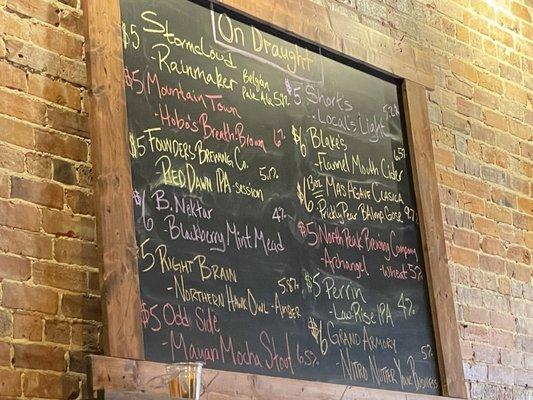 On Draught
$5 Stormcloud
- Rainmaker Belgian Pale Ale 5.9%
$5 Mountain Town
- Hobo's Breath - Brown 6%
$5 Founder's Brewing Co. 5.1%
Red Dawn IPA - session
$6 B. Nektar 4%
- Blackberry Mint Mead
$5 Right Brain 5.8%
- Northern Hawk Owl - Amber
$5 Odd Side
- Mayan Mocha Stout 6.5%
$5 Short's 5.2%
- Local's Light
$6 Blake's 6.5%
- Flannel Mouth Cider
$6 13oz Mas Agave Clasica
- Prickly Pear Gose 9.7%
$5 North Peak Brewing Company
- Archangel - Wheat 5%
$5 Perrin 4%
- Low Rise IPA
$6 Grand Armory 5%
- Nitro Nutter Your Business